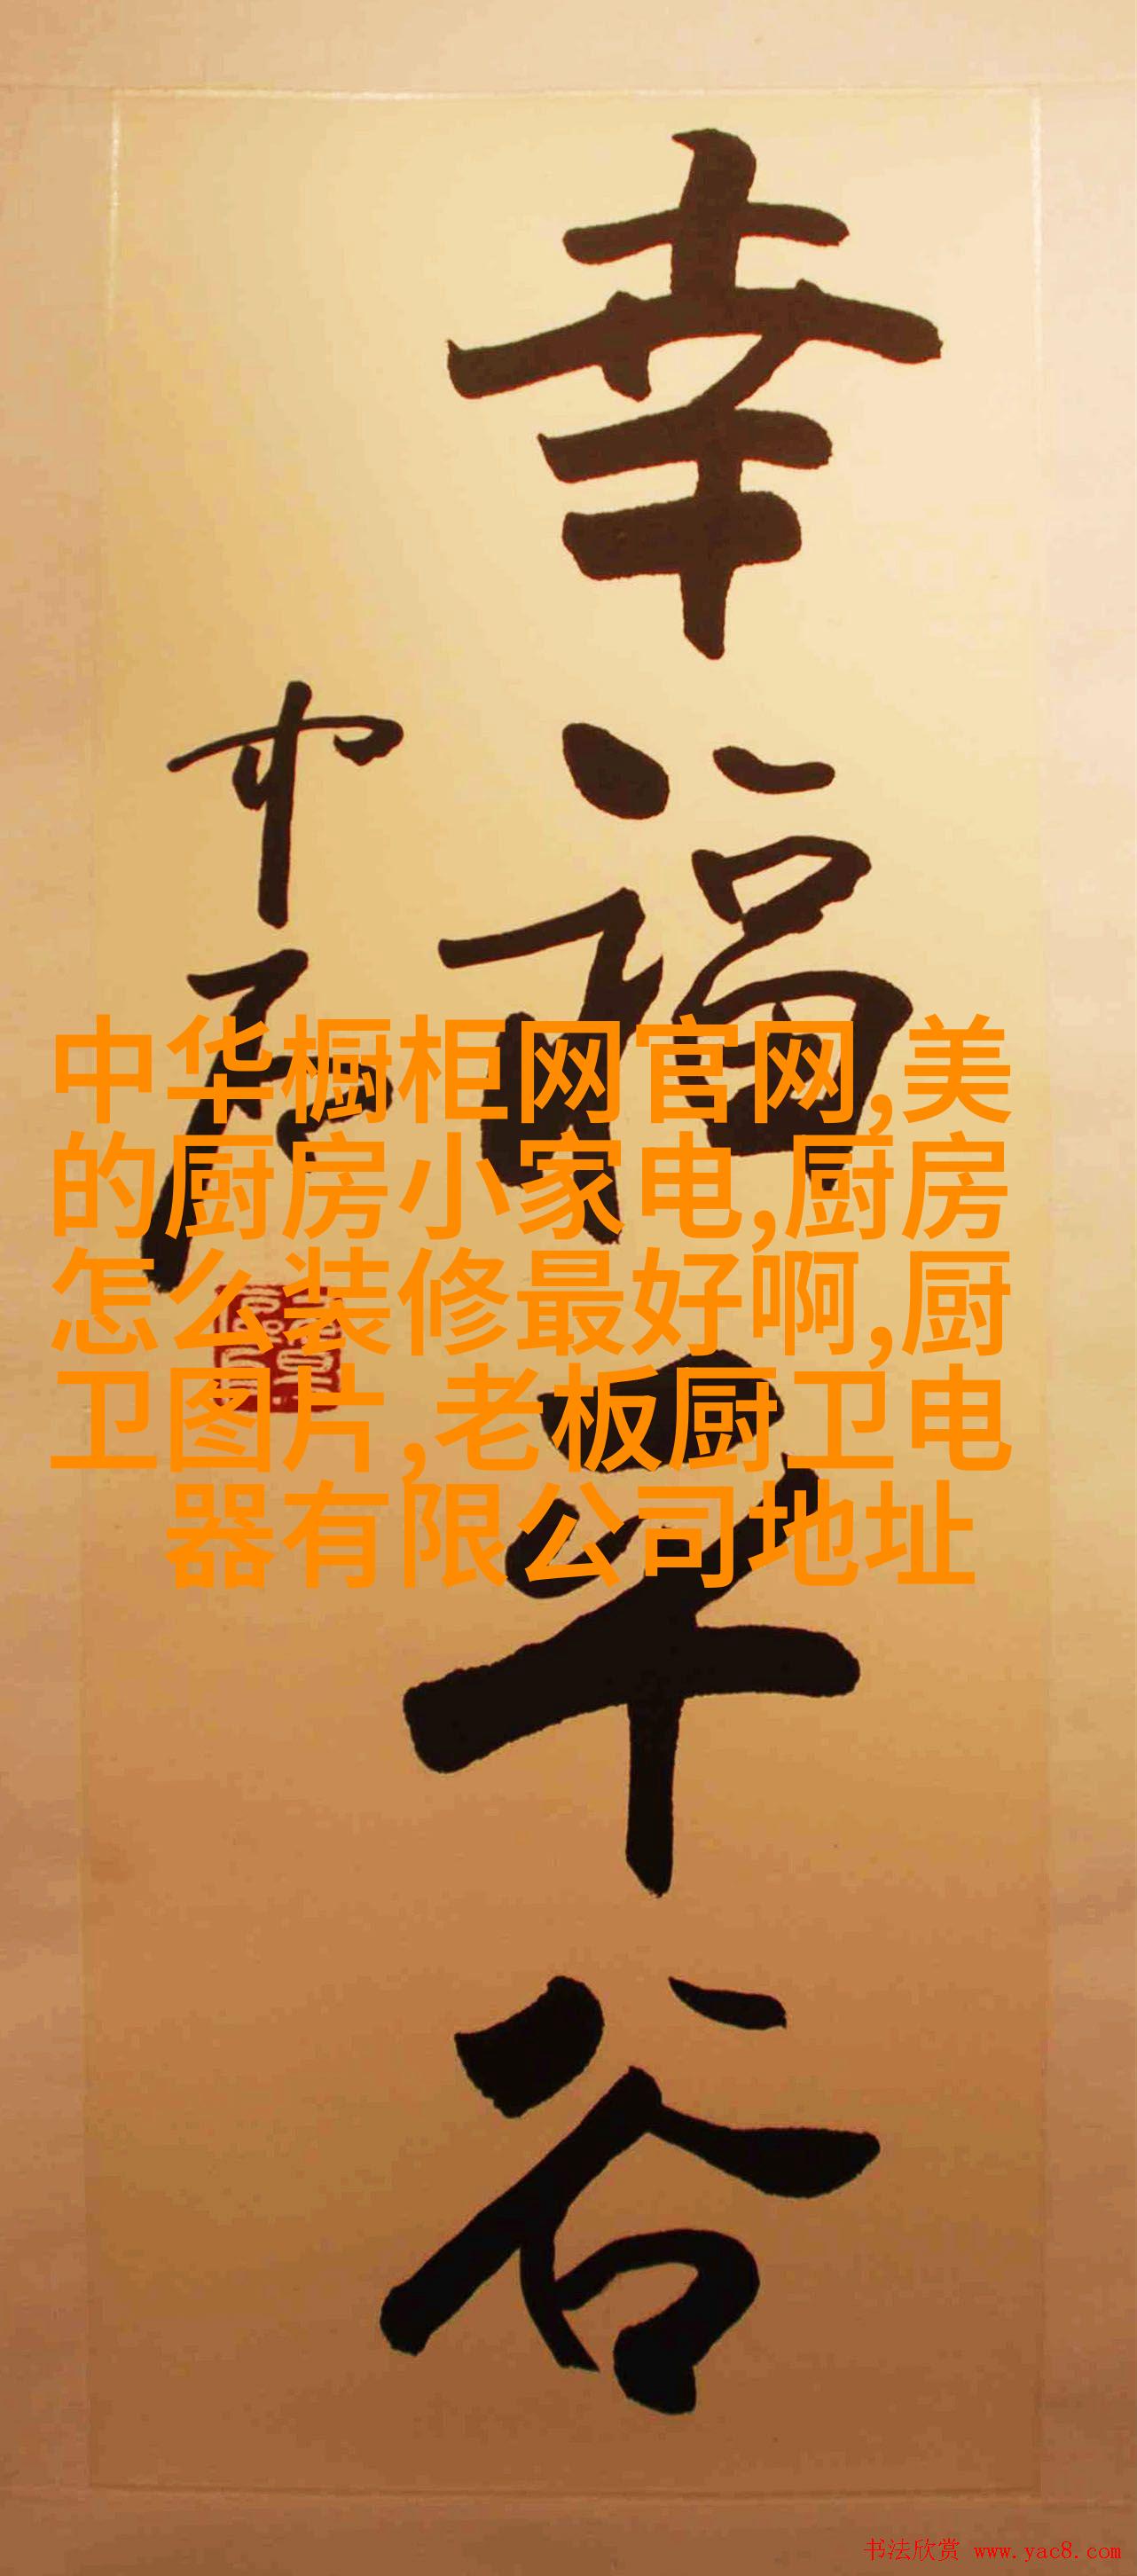 幸福平谷
中石
中华橱柜网官网,美
的厨房小家电,厨房
怎么装修最好啊,厨
卫图片,老板厨卫电
器有限公司地址
书法欣赏 www.yac8.com